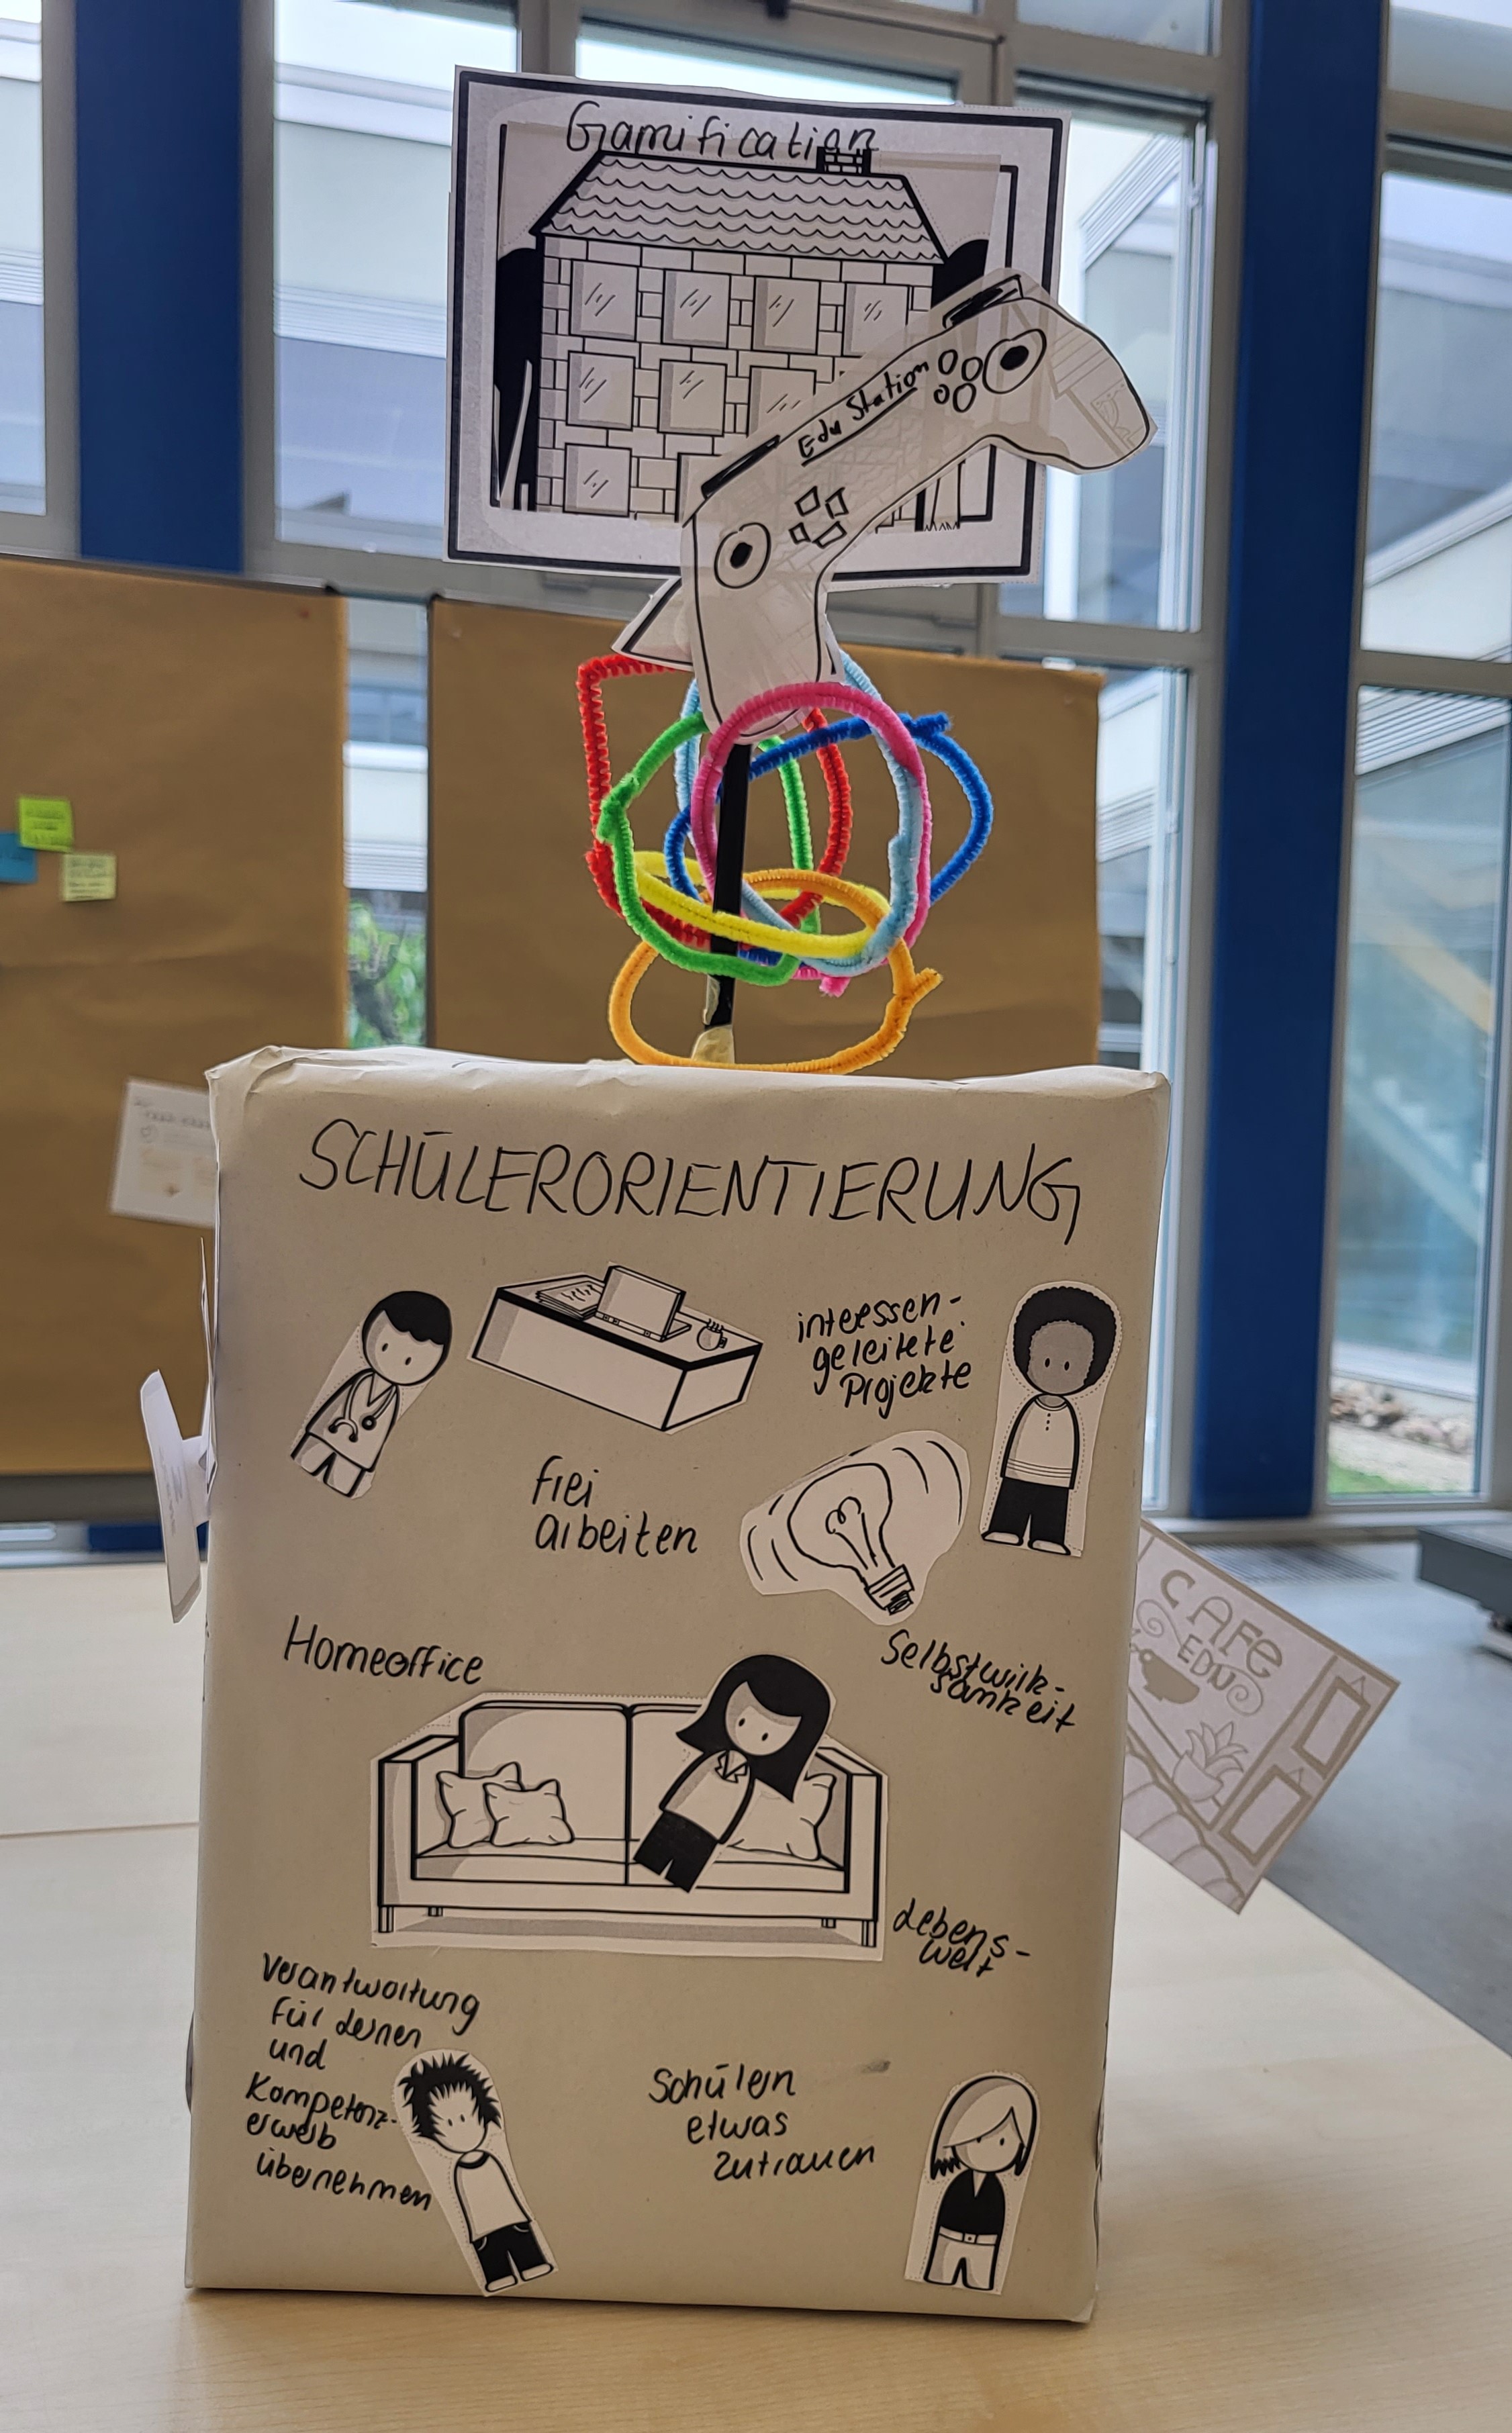 Gamification
Edu Station
SCHÜLERORIENTIERUNG
interessen-
geleitete
Projekte
frei
arbeiten
Homeoffice
Selbstwirk-
samkeit
CAFE
EDU
Lebens-
welt
Verantwortung
für Lernen
und
Kompetenz-
erwerb
übernehmen
Schülern
etwas
zutrauen